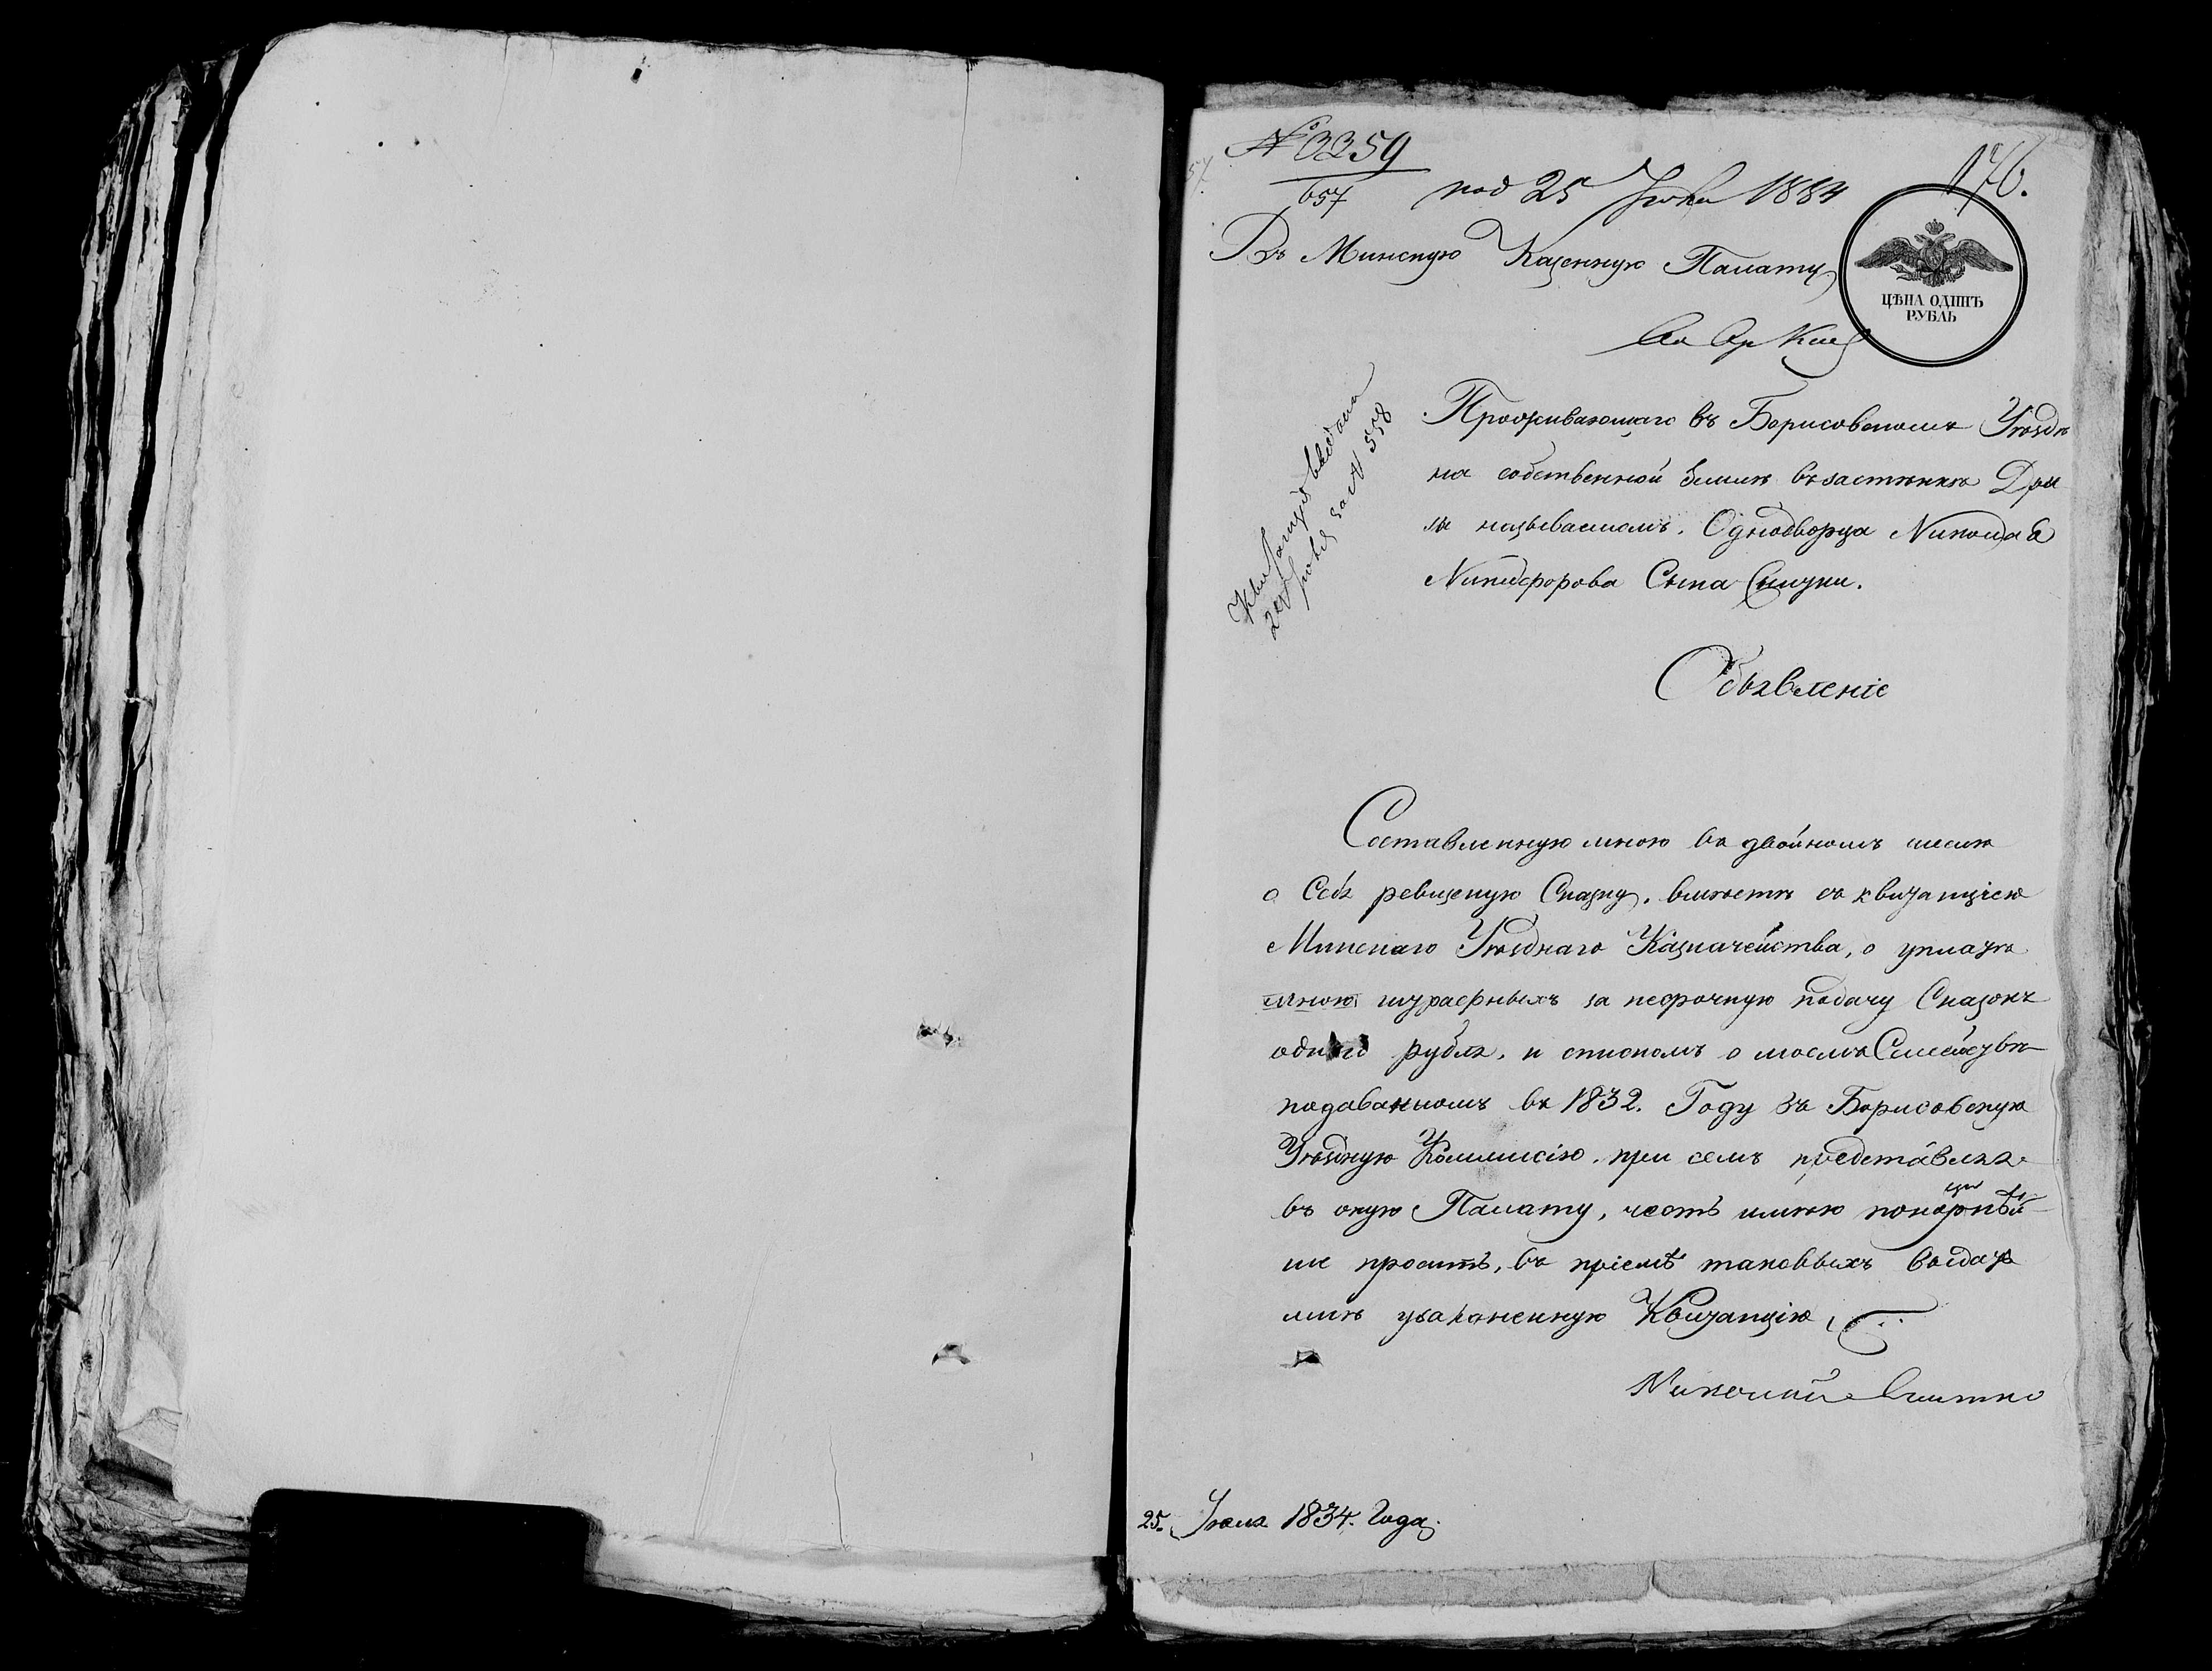 № 3359
657
под 25 Июля 1834
176.
Въ Минскую Казенную Палату
ЦѢНА ОДИНЪ
РУБЛЬ
Квитанція выдана
Июля за № 558
Проживающаго въ Борисовскомъ Уѣздѣ
на собственной Земли въ застѣнкѣ
называемомъ. Однодворца Николая
Никифорова Сына
Объявленіе
Составленную мною въ двойномъ числѣ
о Себѣ ревизскую Сказку, вмѣстѣ съ квитанціею
Минскаго Уѣзднаго Казначейства, о уплатѣ
мною штрафныхъ за несрочную подачу Сказокъ
одного рубля, и спискомъ о моемъ Семействѣ
подаванномъ въ 1832. Году въ Борисовскую
Уѣздную Коммисію, при семъ представляя
въ оную Палату, честь имѣю покорнѣй
ше просить, въ пріемѣ таковыхъ выдать
мнѣ узаконенную Квитанцію
Николай
25. Июля 1834. Года.